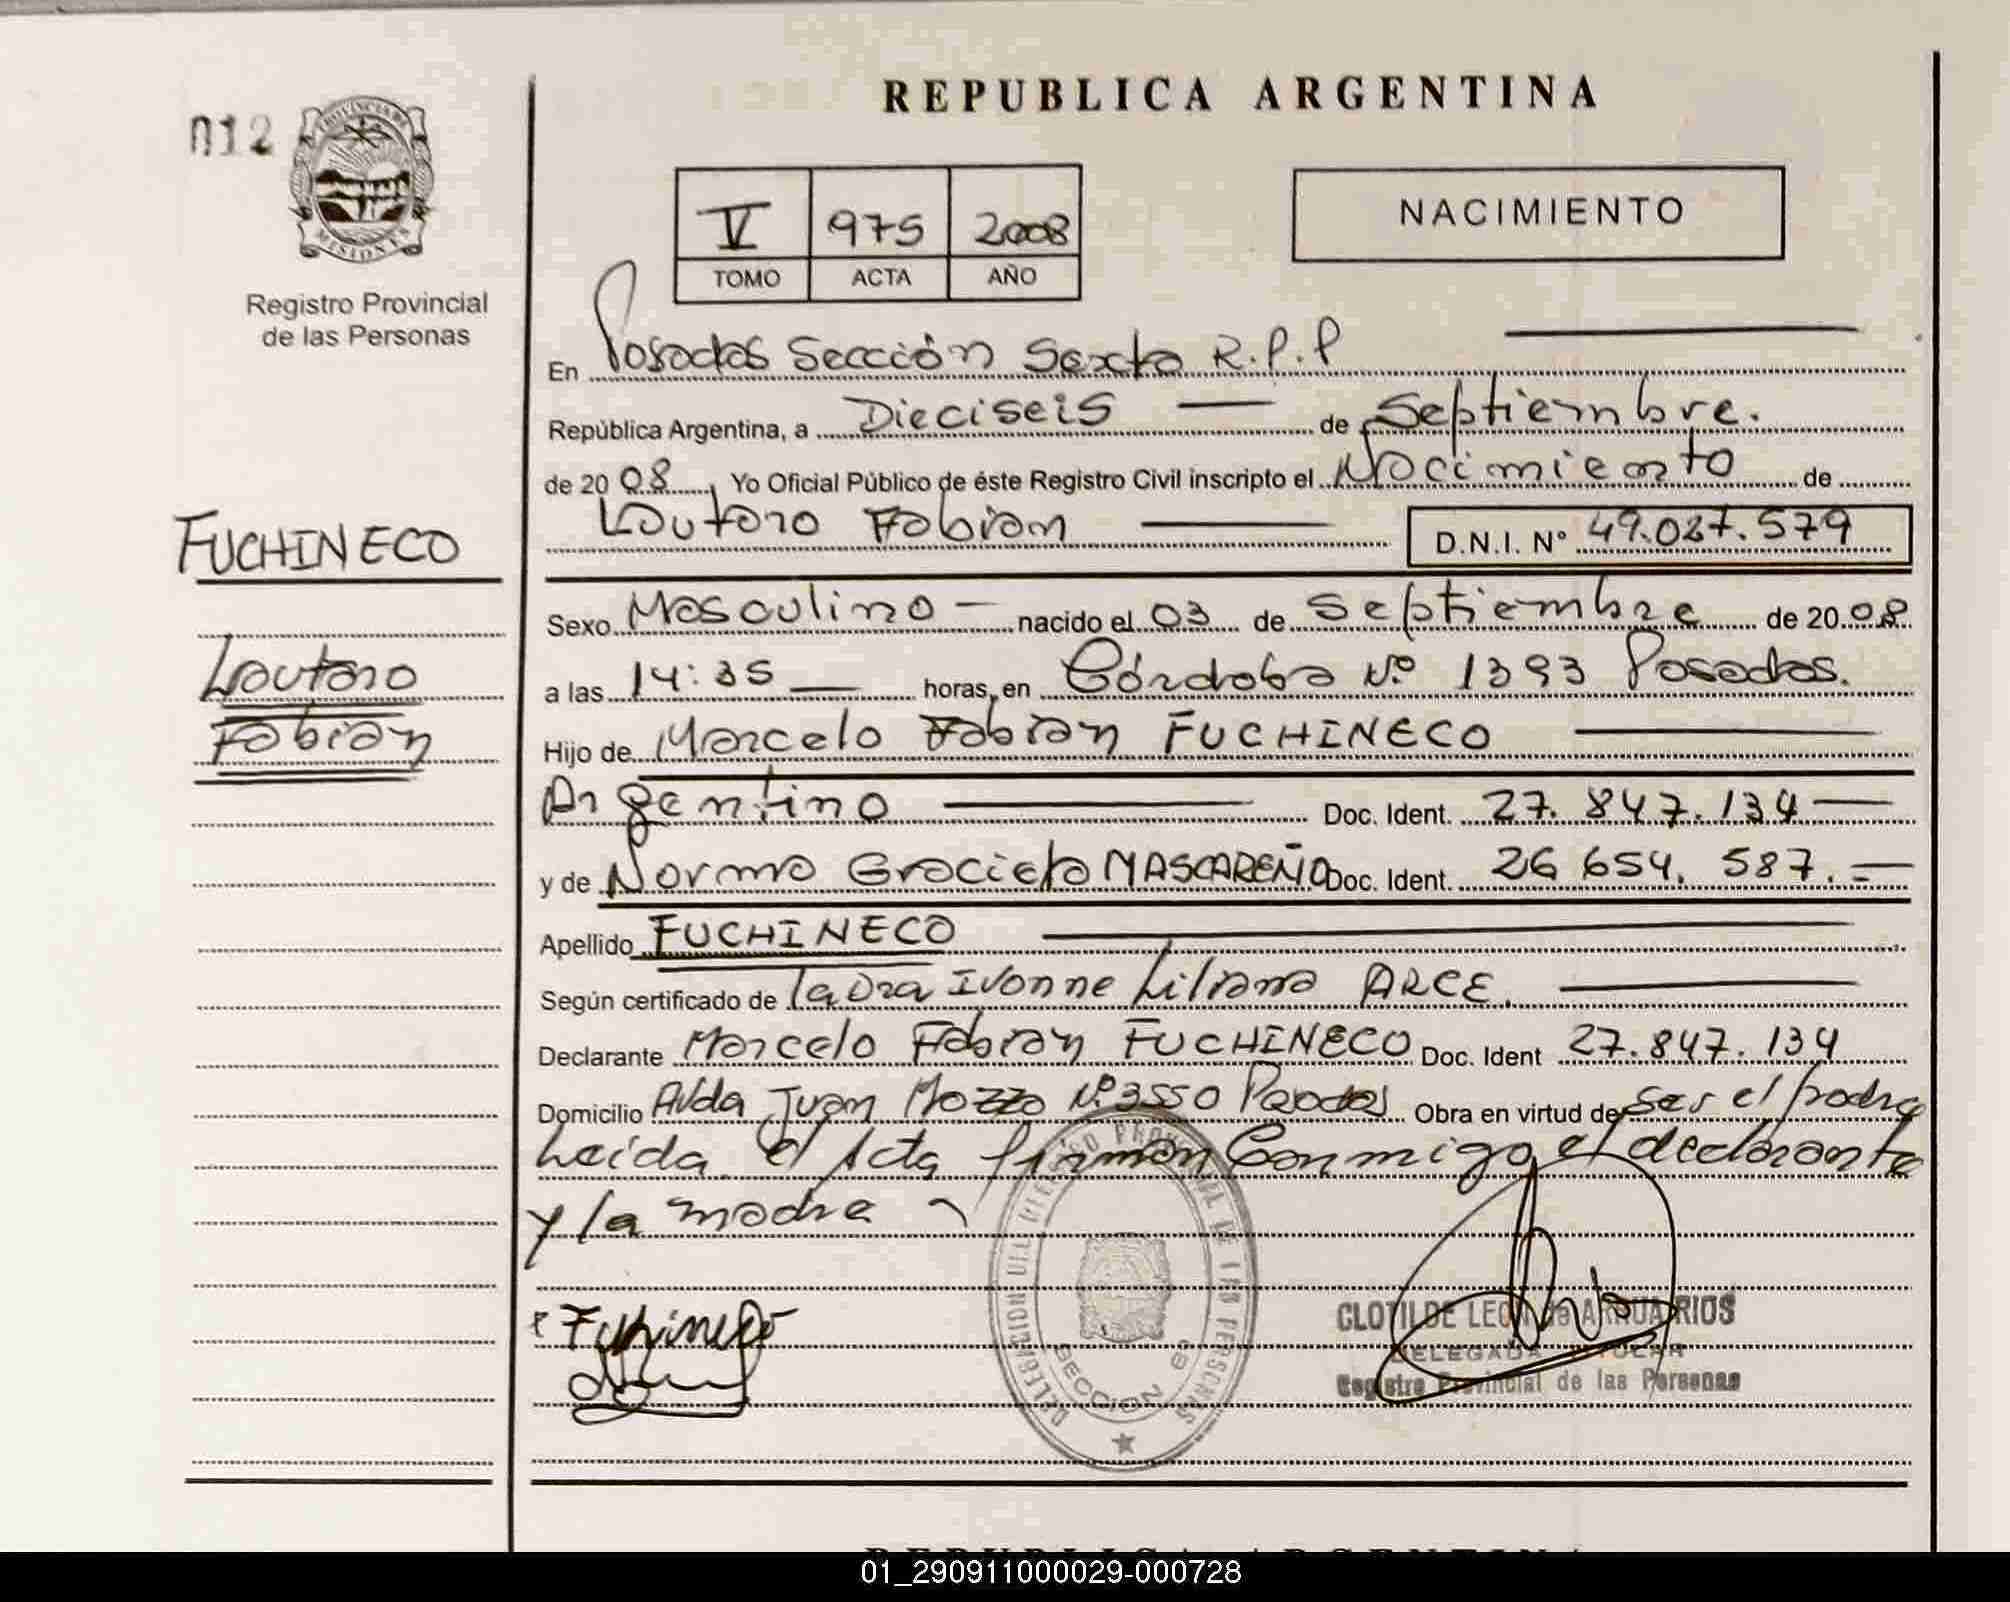 REPUBLICA ARGENTINA
012
PROVINCIA DE
MISIONES
Registro Provincial
de las Personas
V 975 2008
TOMO ACTA AÑO
NACIMIENTO
En Posadas Sección Sexta R.P.P
República Argentina, a Dieciseis de Septiembre.
de 2008, Yo Oficial Público de éste Registro Civil inscripto el Nacimiento de
Lautaro Fabian D.N.I. Nº 49.027.579
FUCHINECO
Lautaro
Fabian
Sexo Masculino nacido el 03 de Septiembre de 2008
a las 14:35 horas, en Córdoba Nº 1393 Posadas.
Hijo de Marcelo Fabian FUCHINECO
Argentino Doc. Ident. 27.847.134
y de Norma Graciela MASCAREÑO Doc. Ident. 26 654. 587.
Apellido FUCHINECO
Según certificado de la Dra Ivonne Liliana ARCE.
Declarante Marcelo Fabian FUCHINECO Doc. Ident 27.847.134
Domicilio Avda Juan Mozzo Nº 3550 Posadas Obra en virtud de ser el padre
Leída el Acta firman Conmigo el declarante
y la madre
DELEGACION DEL REGISTRO PROVINCIAL DE LAS PERSONAS
SECCION 6º
Fuchineco
CLOTILDE LEON de
DELEGADA TITULAR
Registro Provincial de las Personas
REPUBLICA ARGENTINA
01_290911000029-000728